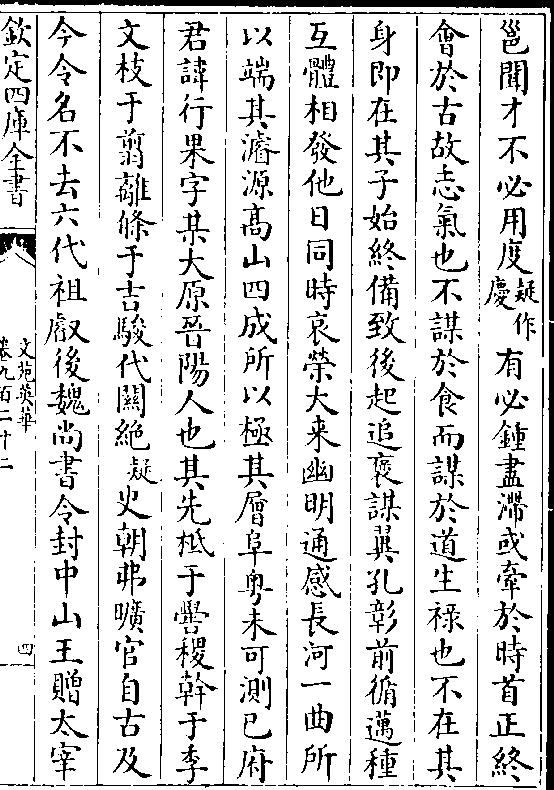 邕聞才不必用度疑作慶有必鍾盡滯或牽於時首正終
會於古故志氣也不謀於食而謀於道生祿也不在其
身即在其子始終備致後起追褒謀翼孔彰前循邁種
互體相發他日同時哀榮大来幽明通感長河一曲所
以端其濬源髙山四成所以極其層阜粤未可測已府
君諱行果字某大原晉陽人也其先柢于嚳稷幹于季
文枝于翦離條于吉駿代闗絶疑史朝弗曠官自古及
今令名不去六代祖叡後魏尚書令封中山王贈太宰
欽定四庫全書
文苑英華
卷九百二十二
四